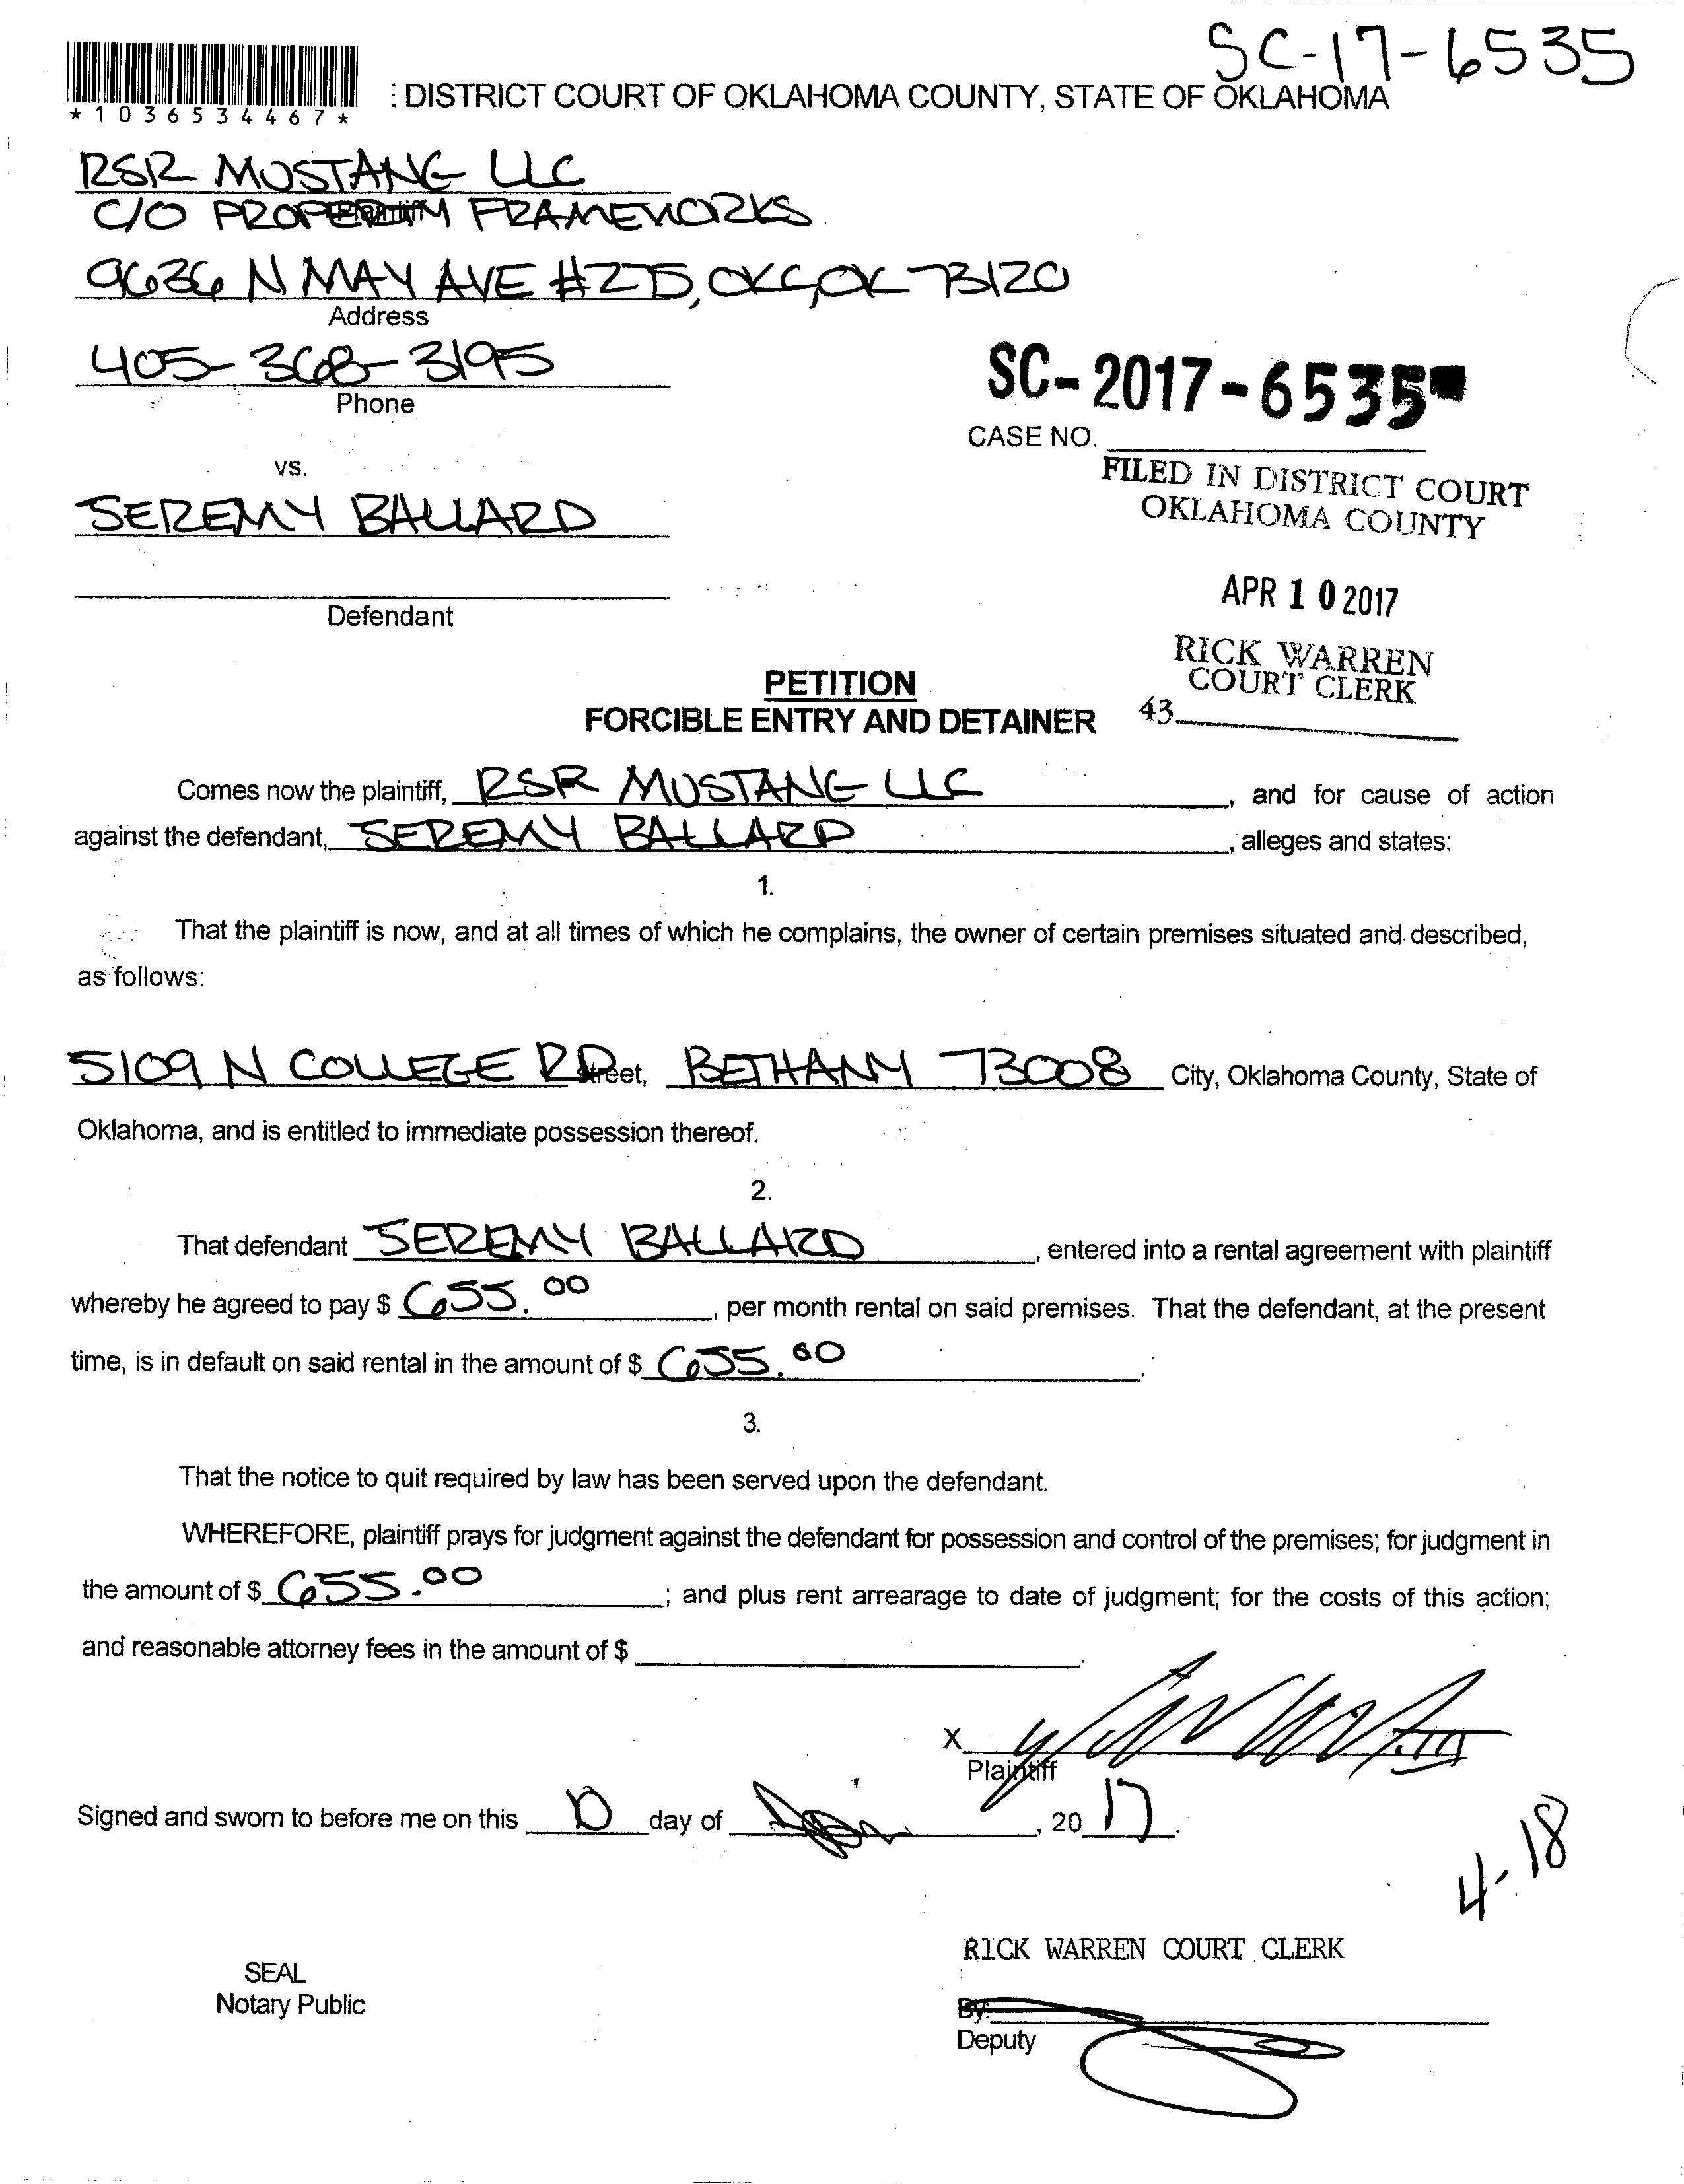 SC-17-6535
*1036534467*
: DISTRICT COURT OF OKLAHOMA COUNTY, STATE OF OKLAHOMA
RSR MUSTANG LLC
Plaintiff
C/O PROPERTY FRAMEWORKS
9636 N MAY AVE #275, OKC, OK 73120
Address
405-368-3195
Phone
SC-2017-6535
CASE NO.
vs.
FILED IN DISTRICT COURT
OKLAHOMA COUNTY
JEREMY BALLARD
APR 10 2017
Defendant
RICK WARREN
COURT CLERK
43
PETITION
FORCIBLE ENTRY AND DETAINER
Comes now the plaintiff, RSR MUSTANG LLC, and for cause of action
against the defendant, JEREMY BALLARD, alleges and states:
1.
That the plaintiff is now, and at all times of which he complains, the owner of certain premises situated and described,
as follows:
5109 N COLLEGE RD Street, BETHANY 73008 City, Oklahoma County, State of
Oklahoma, and is entitled to immediate possession thereof.
2.
That defendant JEREMY BALLARD, entered into a rental agreement with plaintiff
whereby he agreed to pay $ 655.00, per month rental on said premises. That the defendant, at the present
time, is in default on said rental in the amount of $ 655.00.
3.
That the notice to quit required by law has been served upon the defendant.
WHEREFORE, plaintiff prays for judgment against the defendant for possession and control of the premises; for judgment in
the amount of $ 655.00; and plus rent arrearage to date of judgment; for the costs of this action;
and reasonable attorney fees in the amount of $ .
X
Plaintiff
Signed and sworn to before me on this 10 day of , 20 17.
4-18
RICK WARREN COURT CLERK
SEAL
Notary Public
By:
Deputy